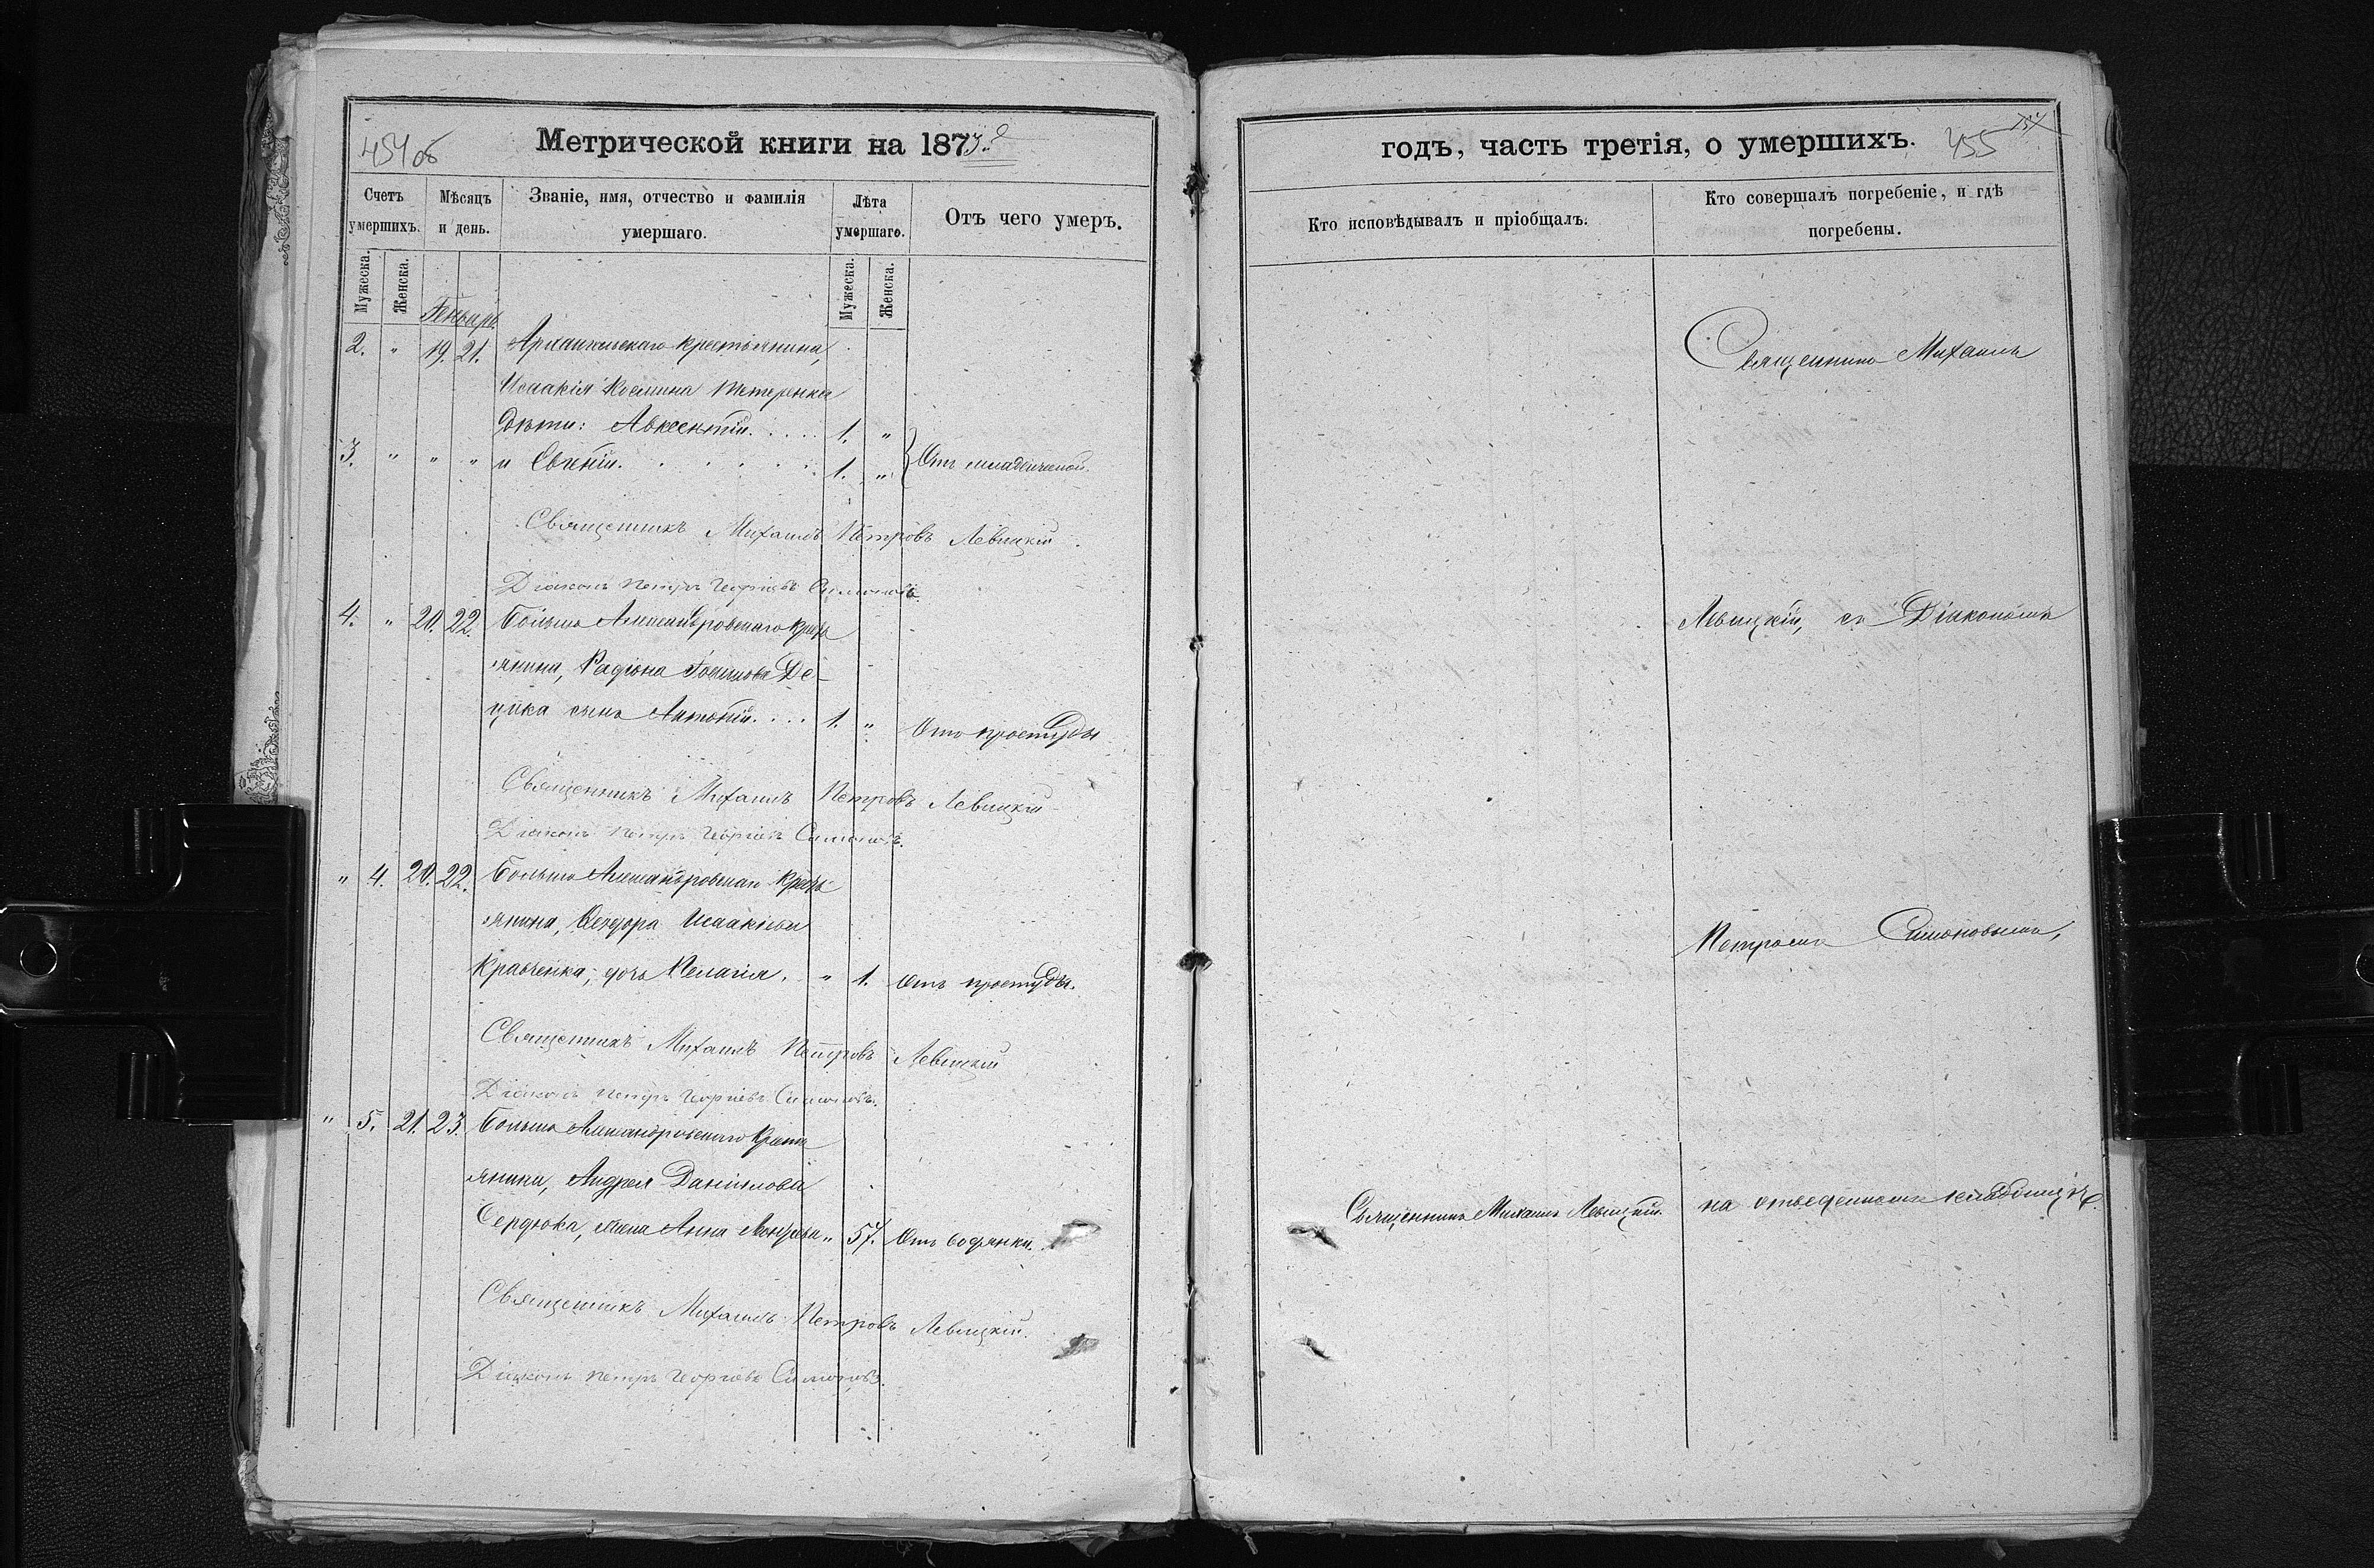 454 об
Метрической книги на 1873й
Счетъ умершихъ.
Мѣсяцъ и день.
Званіе, имя, отчество и фамилія умершаго.
Лѣта умершаго.
Отъ чего умеръ.
Мужеска.
Женска.
Мужеска.
Женска.
Генварь
2. " 19. 21. Архангельскаго крестьянина,
Исаакія Космина Тетеренка
дѣти: Авксентій. . . . . 1. "
3. " " " и Евгеній. . . . . . . 1. " Отъ младенческой.
Священникъ Михаилъ Петровъ Левицкій.
Діаконъ Петръ Георгіевъ Симоновъ.
4. " 20. 22. Больше Александровскаго крест
янина, Радіона
цика сынъ Антоній. . . . 1. " Отъ простуды
Священникъ Михаилъ Петровъ Левицкій
Діаконъ Петръ Георгіевъ Симоновъ.
" 4. 20. 22. Больше Александровскаго крест
янина, Ѳеодора Исаакіева
Кравченка, дочь Пелагія. " 1. Отъ простуды.
Священникъ Михаилъ Петровъ Левицкій
Діаконъ Петръ Георгіевъ Симоновъ.
" 5. 21. 23. Больше Александровскаго крест
янина, Андрея Даніилова
Сердюка, жена Анна " 57. Отъ водянки.
Священникъ Михаилъ Петровъ Левицкій.
Діаконъ Петръ Георгіевъ Симоновъ.
годъ, часть третія, о умершихъ.
455
Кто исповѣдывалъ и пріобщалъ.
Кто совершалъ погребеніе, и гдѣ погребены.
Священникъ Михаилъ
Левицкій, съ Діакономъ
Петромъ Симоновымъ,
Священникъ Михаилъ Левицкій.
на отведенномъ кладбищѣ.